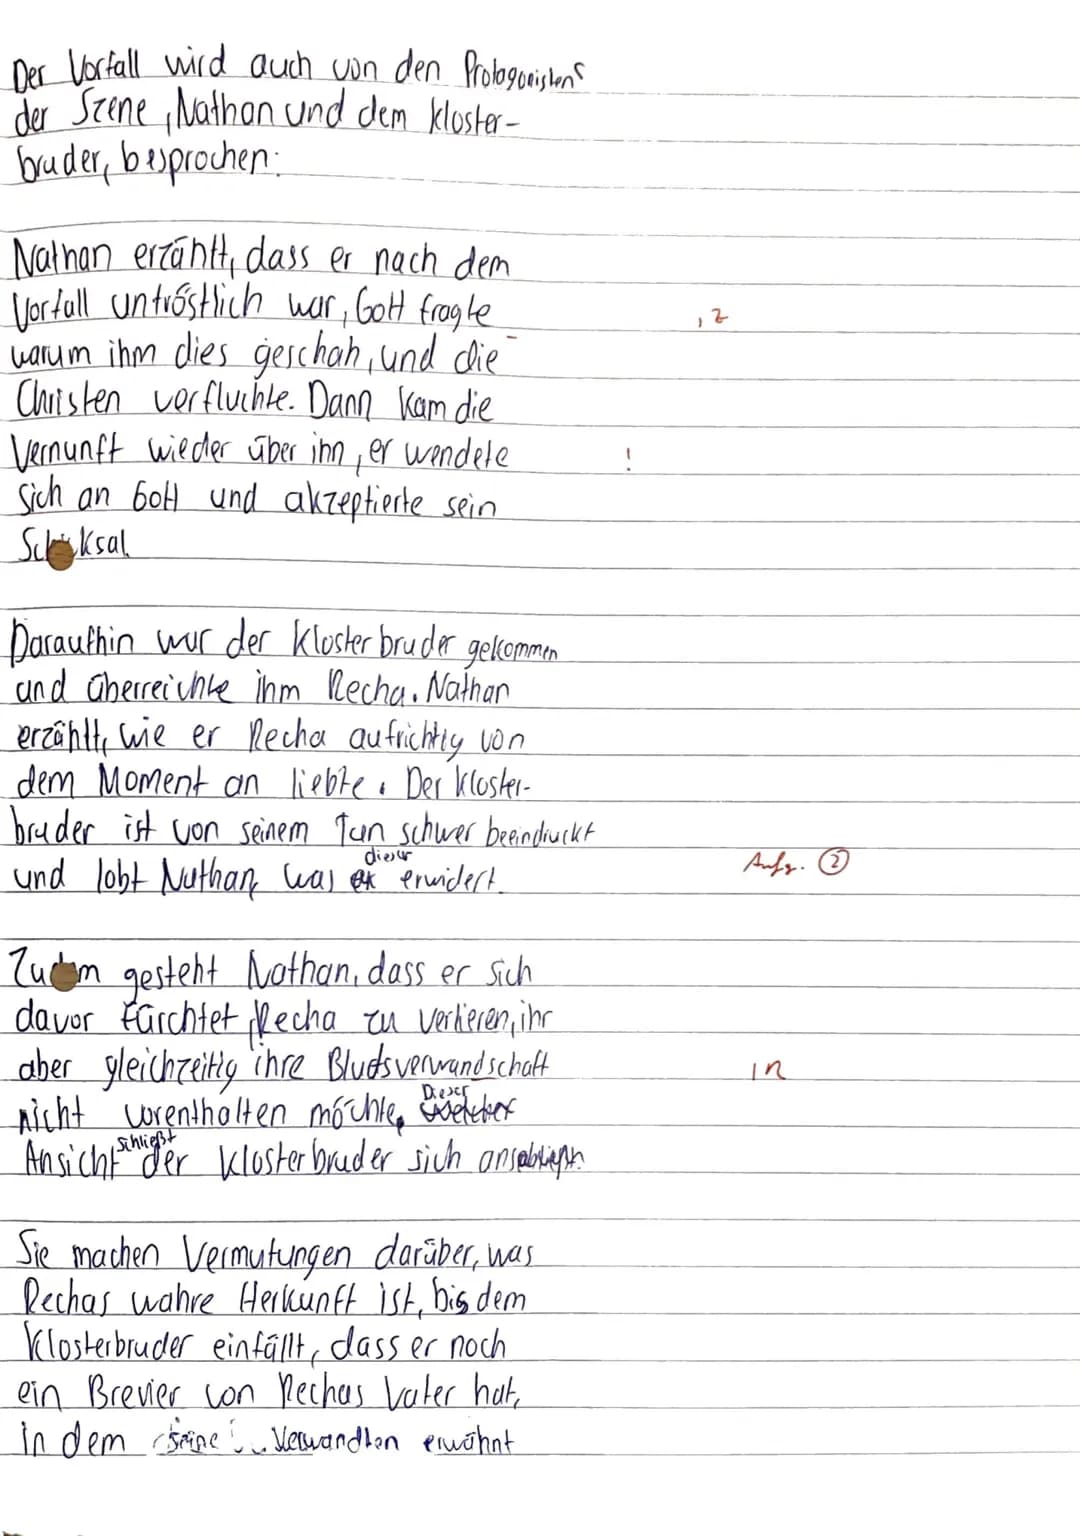 Der Vorfall wird auch von den Protagonisten
der Szene, Nathan und dem Kloster-
bruder, besprochen:
Nathan erzählt, dass er nach dem
Vorfall untröstlich war, Gott fragte
, Z
warum ihm dies geschah, und die
Christen verfluchte. Dann kam die
Vernunft wieder über ihn, er wendete
!
sich an Gott und akzeptierte sein
Schicksal.
Daraufhin war der Klosterbruder gekommen
und überreichte ihm Recha. Nathan
erzählt, wie er Recha aufrichtig von
dem Moment an liebte. Der Kloster-
bruder ist von seinem Tun schwer beeindruckt
und lobt Nathan, was dieser erwidert.
Aufg. ②
Zudem gesteht Nathan, dass er sich
davor fürchtet, Recha zu verlieren, ihr
aber gleichzeitig ihre Bludsverwandschaft
I R
nicht vorenthalten möchte. Dieser
Ansicht schließt der Klosterbruder sich an.
Sie machen Vermutungen darüber, was
Rechas wahre Herkunft ist, bis dem
Klosterbruder einfällt, dass er noch
ein Brevier von Rechas Vater hat,
in dem seine Verwandten erwähnt